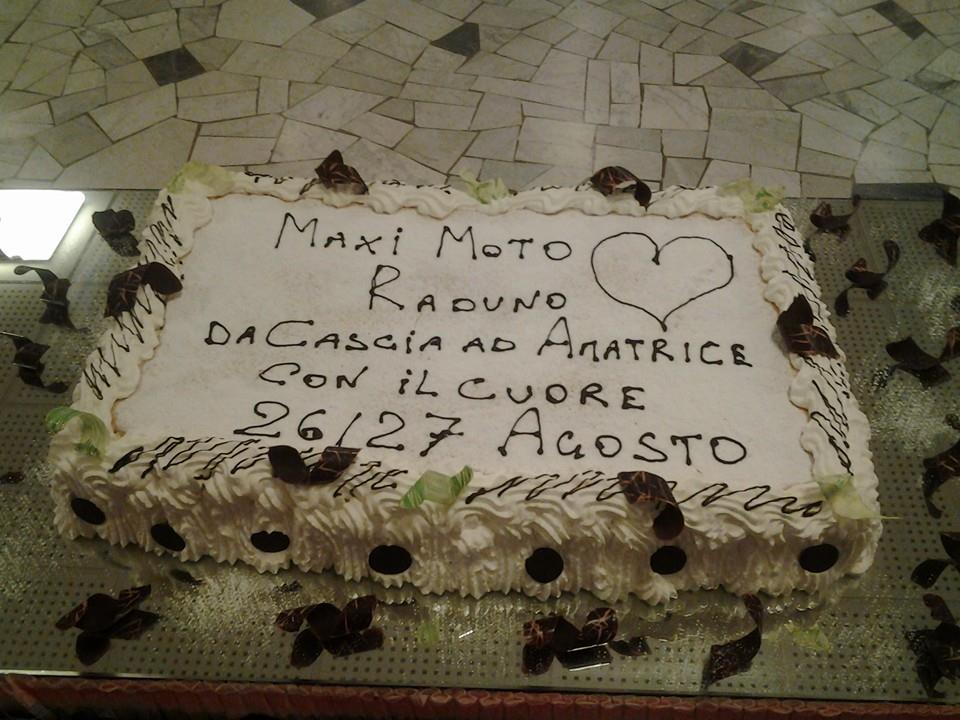 Maxi Moto
Raduno
da Cascia ad Amatrice
con il cuore
26/27 Agosto